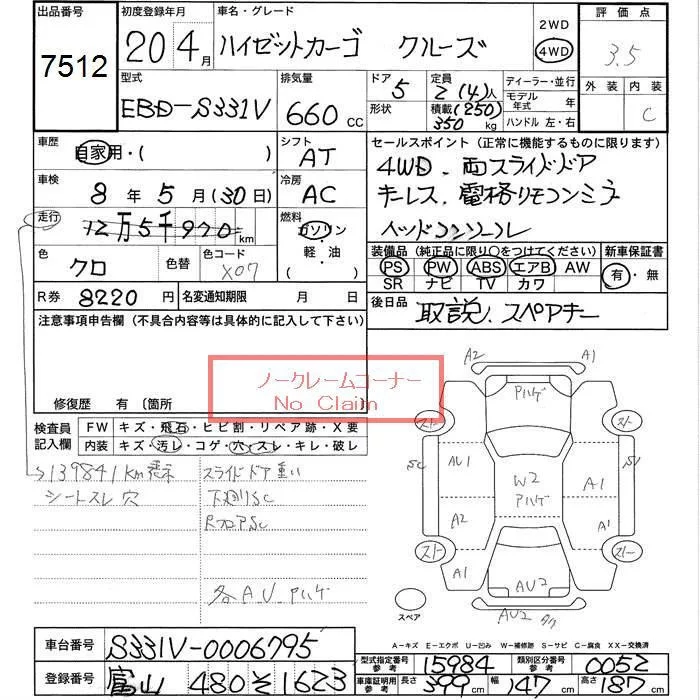 出品番号 初度登録年月 車名・グレード 2WD 評価点
7512 20年 4月 ハイゼットカーゴ クルーズ 4WD 3.5
型式 排気量 ドア 5 定員 2(4)人 ディーラー・並行 外装 内装
EBD-S331V 660cc 形状 積載(250) 350kg モデル年式 年 C
ハンドル 左・右
車歴 自家用・( ) シフト AT セールスポイント(正常に機能するものに限ります)
車検 8年5月(30日) 冷房 AC 4WD、両スライドドア
走行 12万5千970km 燃料 ガソリン・軽・油 キーレス、電格リモコンミラー
ヘッドコンソール
色 クロ 色替 色コード X07 装備品(純正品に限り○をつけてください) 新車保証書
PS PW ABS エアB AW 有・無
SR ナビ TV カワ
R券 8220円 名変通知期限 月 日 後日品 取説、スペアキー
注意事項申告欄(不具合内容等は具体的に記入して下さい)
ノークレームコーナー
No Claim
修復歴 有(箇所
検査員記入欄 FW キズ・飛石・ヒビ割・リペア跡・X要
内装 キズ・汚レ・コゲ・穴・スレ・キレ・破レ
139841km表示 スライドドア重い
シートスレ 穴 下廻りSC
RフロアSC
各A.U.Pハゲ
A2 A1
Pハゲ
スト スト
SC AU1 W2 Pハゲ A1 S1
A2 A1
スト スト
A1 AU2 A1
スペア AU2
A-キズ E-エクボ U-凹み W-補修跡 S-サビ C-腐食 XX-交換済
車台番号 S331V-0006795
型式指定番号 参考 15984 類別区分番号 参考 0052
登録番号 富山 480 そ 1623 車庫証明用参考 長さ 399cm 幅 147cm 高さ 187cm